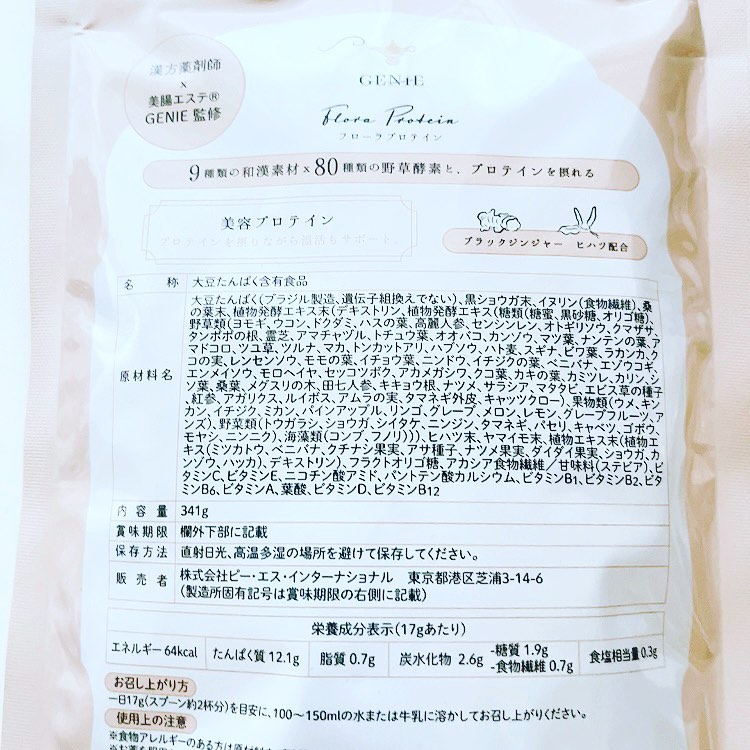 漢方薬剤師
×
美腸エステ®
GENIE 監修
GENIE
Flora Protein
フローラプロテイン
9種類の和漢素材×80種類の野草酵素と、プロテインを摂れる
美容プロテイン
プロテインを摂りながら温活もサポート。
ブラックジンジャー ヒハツ配合
名称 大豆たんぱく含有食品
原材料名
大豆たんぱく(ブラジル製造、遺伝子組換えでない)、黒ショウガ末、イヌリン(食物繊維)、桑
の葉末、植物発酵エキス末(デキストリン、植物発酵エキス(糖類(糖蜜、黒砂糖、オリゴ糖)、
野草類(ヨモギ、ウコン、ドクダミ、ハスの葉、高麗人参、センシンレン、オトギリソウ、クマザサ、
タンポポの根、霊芝、アマチャヅル、トチュウ葉、オオバコ、カンゾウ、マツ葉、ナンテンの葉、ア
マドコロ、ツユ草、ツルナ、マカ、トンカットアリ、ハブソウ、ハト麦、スギナ、ビワ葉、ラカンカ、ク
コの実、レンセンソウ、モモの葉、イチョウ葉、ニンドウ、イチジクの葉、ベニバナ、エゾウコギ、
エンメイソウ、モロヘイヤ、セッコツボク、アカメガシワ、クコ葉、カキの葉、カミツレ、カリン、シ
ソ葉、桑葉、メグスリの木、田七人参、キキョウ根、ナツメ、サラシア、マタタビ、エビス草の種子
、紅参、アガリクス、ルイボス、アムラの実、タマネギ外皮、キャッツクロー)、果物類(ウメ、キン
カン、イチジク、ミカン、パインアップル、リンゴ、グレープ、メロン、レモン、グレープフルーツ、ア
ンズ)、野菜類(トウガラシ、ショウガ、シイタケ、ニンジン、タマネギ、パセリ、キャベツ、ゴボウ、
モヤシ、ニンニク)、海藻類(コンブ、フノリ)))、ヒハツ末、ヤマイモ末、植物エキス末(植物エ
キス(ミツカトウ、ベニバナ、クチナシ果実、アサ種子、ナツメ果実、ダイダイ果実、ショウガ、カ
ンゾウ、ハッカ)、デキストリン)、フラクトオリゴ糖、アカシア食物繊維/甘味料(ステビア)、ビ
タミンC、ビタミンE、ニコチン酸アミド、パントテン酸カルシウム、ビタミンB1、ビタミンB2、ビタ
ミンB6、ビタミンA、葉酸、ビタミンD、ビタミンB12
内容量 341g
賞味期限 欄外下部に記載
保存方法 直射日光、高温多湿の場所を避けて保存してください。
販売者 株式会社ビー・エス・インターナショナル 東京都港区芝浦3-14-6
(製造所固有記号は賞味期限の右側に記載)
栄養成分表示(17gあたり)
エネルギー64kcal たんぱく質 12.1g 脂質 0.7g 炭水化物 2.6g -糖質 1.9g
-食物繊維 0.7g 食塩相当量 0.3g
お召し上がり方
一日17g(スプーン約2杯分)を目安に、100〜150mlの水または牛乳に溶かしてお召し上がりください。
使用上の注意
※食物アレルギーのある方は原材料